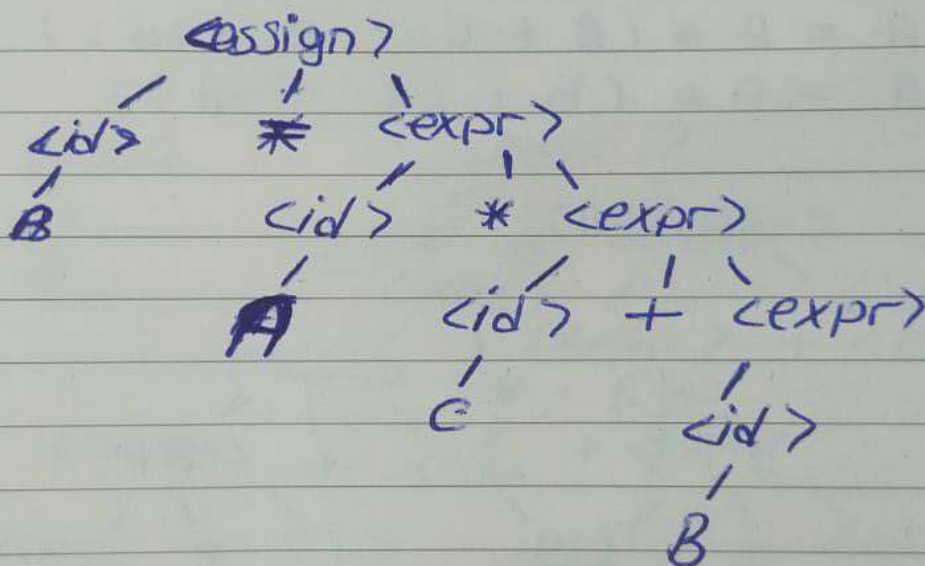 <assign>
<id> <expr>
B <id> * <expr>
A <id> + <expr>
C <id>
B